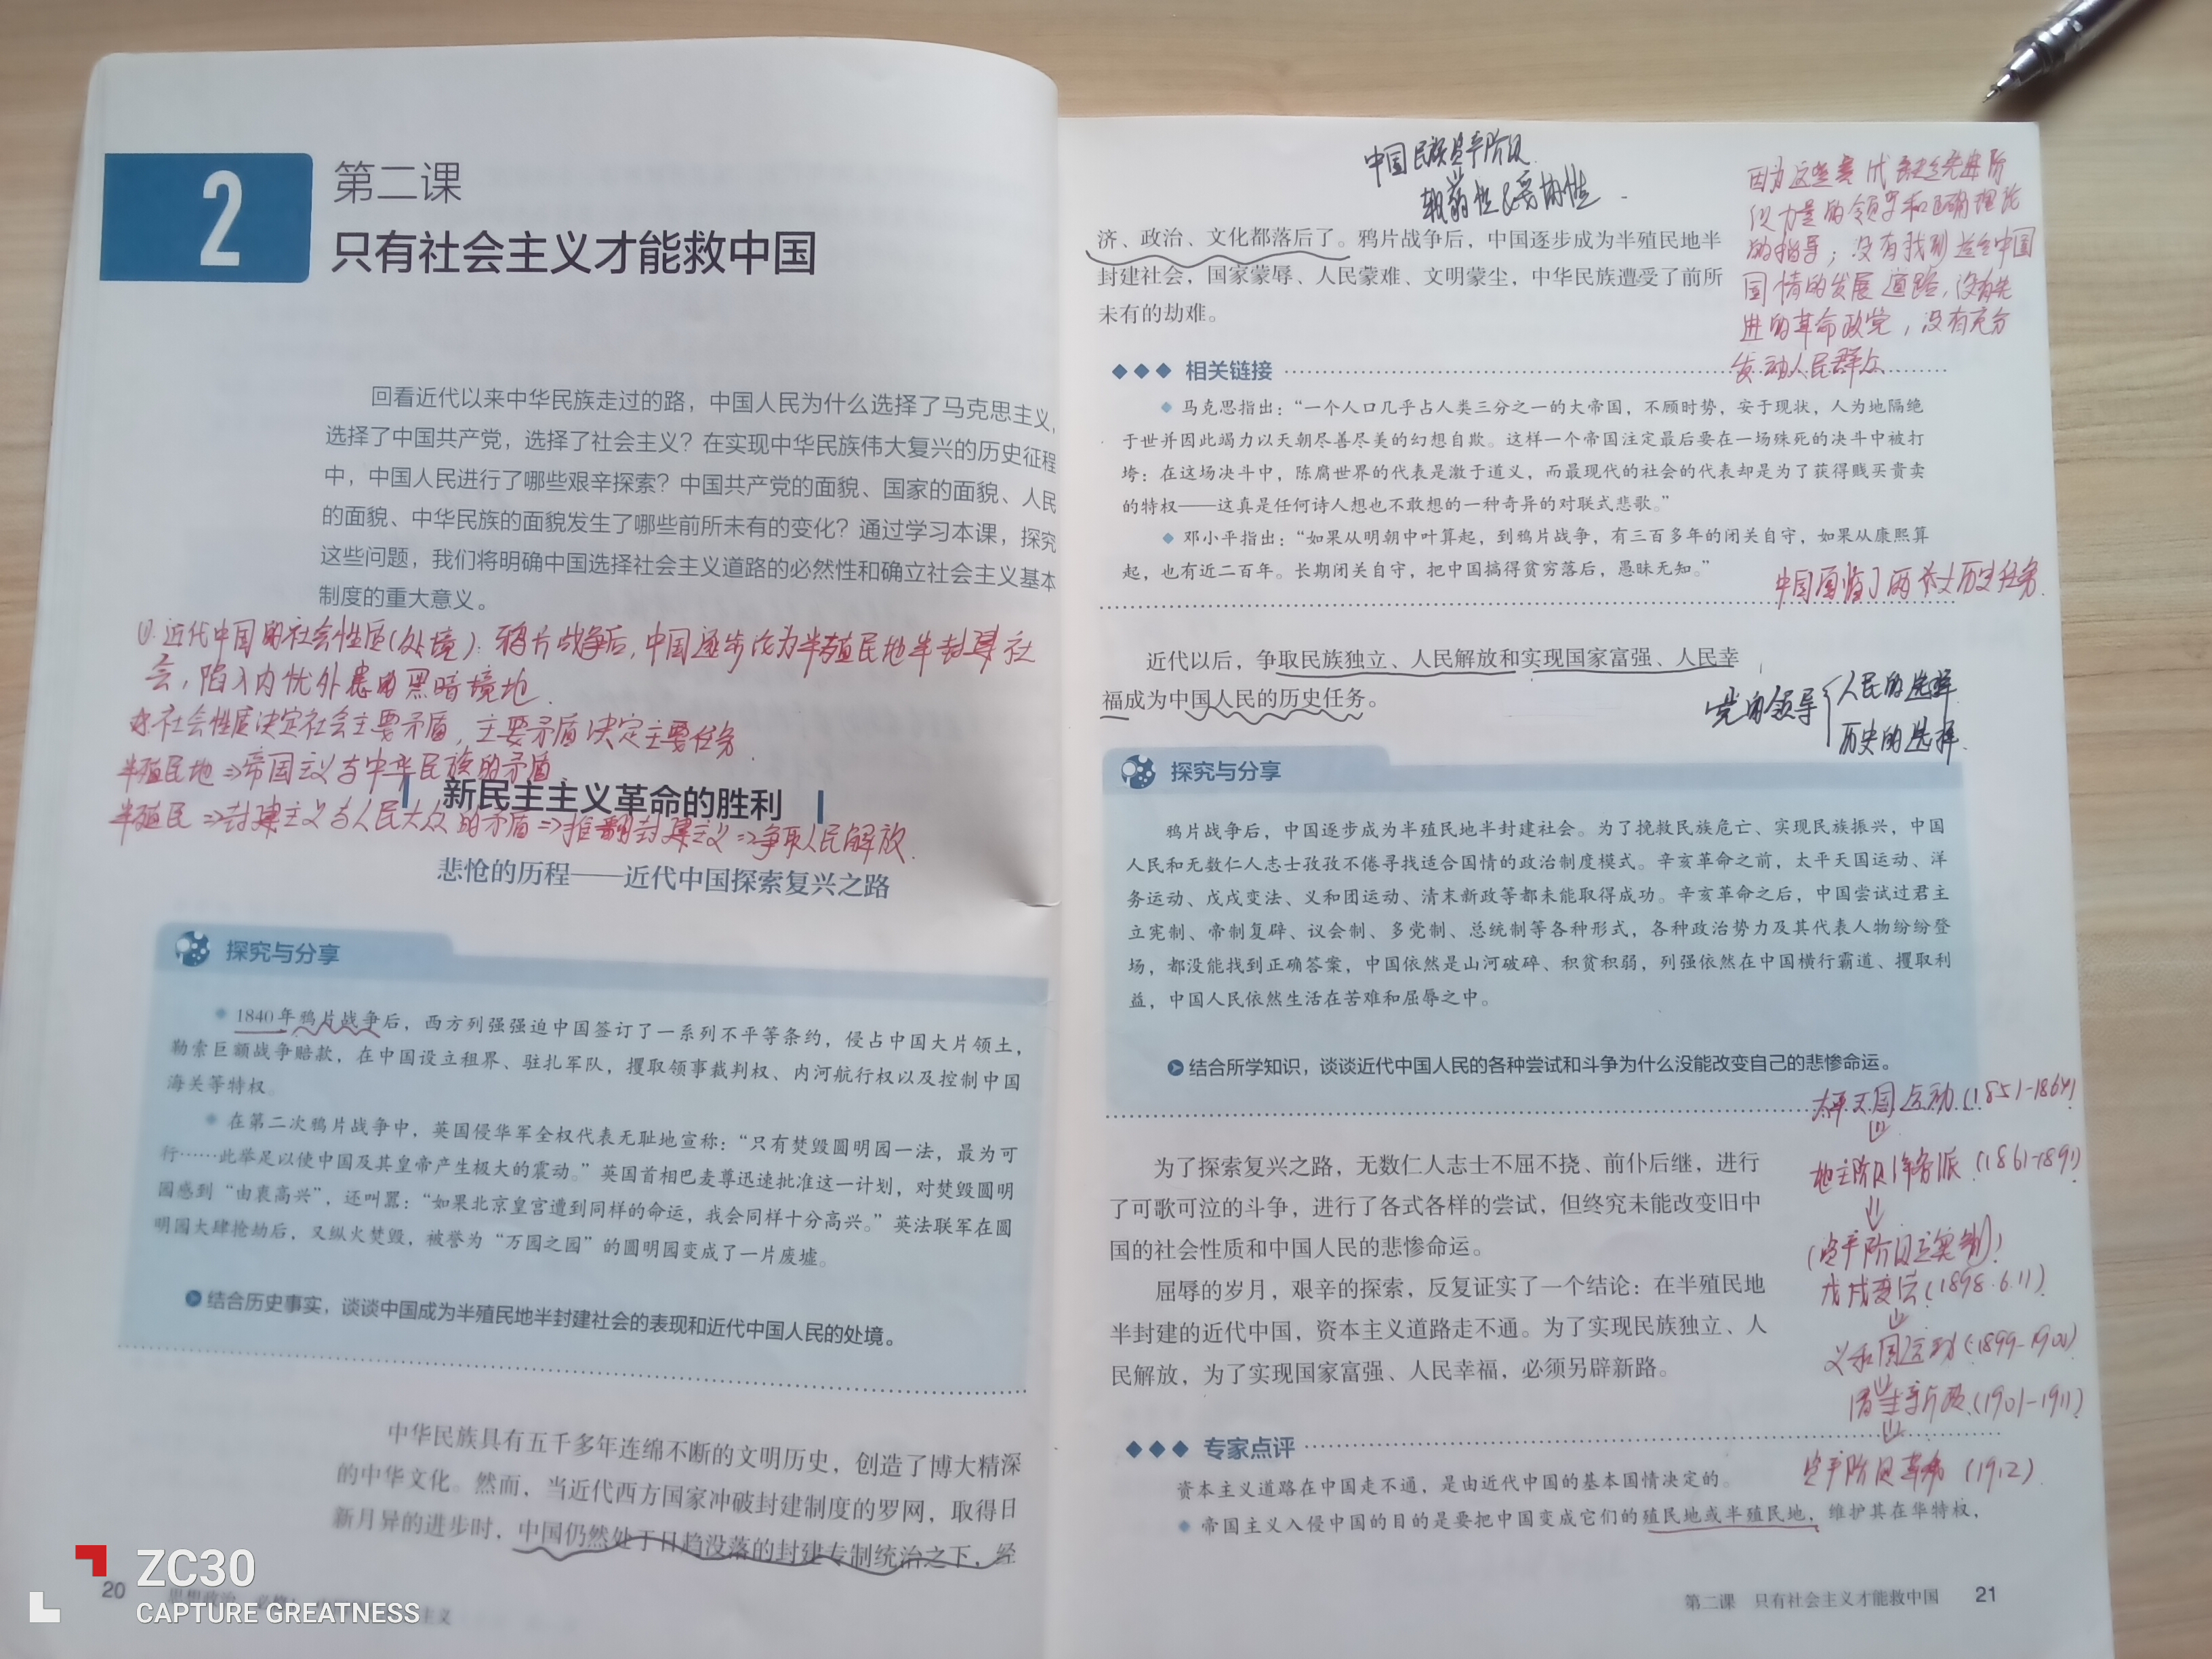 2
第二课
只有社会主义才能救中国
回看近代以来中华民族走过的路，中国人民为什么选择了马克思主义，
选择了中国共产党，选择了社会主义？在实现中华民族伟大复兴的历史征程
中，中国人民进行了哪些艰辛探索？中国共产党的面貌、国家的面貌、人民
的面貌、中华民族的面貌发生了哪些前所未有的变化？通过学习本课，探究
这些问题，我们将明确中国选择社会主义道路的必然性和确立社会主义基本
制度的重大意义。
近代中国的社会性质(处境)：鸦片战争后，中国逐步沦为半殖民地半封建社
会，陷入内忧外患的黑暗境地．
社会性质决定社会主要矛盾，主要矛盾决定主要任务．
半殖民地⇒帝国主义与中华民族的矛盾
新民主主义革命的胜利
半殖民⇒封建主义与人民大众的矛盾⇒推翻封建主义⇒争取人民解放．
悲怆的历程——近代中国探索复兴之路
探究与分享
1840年鸦片战争后，西方列强强迫中国签订了一系列不平等条约，侵占中国大片领土，
勒索巨额战争赔款，在中国设立租界、驻扎军队，攫取领事裁判权、内河航行权以及控制中国
海关等特权。
在第二次鸦片战争中，英国侵华军全权代表无耻地宣称：“只有焚毁圆明园一法，最为可
行……此举足以使中国及其皇帝产生极大的震动。”英国首相巴麦尊迅速批准这一计划，对焚毁圆明
园感到“由衷高兴”，还叫嚣：“如果北京皇宫遭到同样的命运，我会同样十分高兴。”英法联军在圆
明园大肆抢劫后，又纵火焚毁，被誉为“万园之园”的圆明园变成了一片废墟。
结合历史事实，谈谈中国成为半殖民地半封建社会的表现和近代中国人民的处境。
中华民族具有五千多年连绵不断的文明历史，创造了博大精深
的中华文化。然而，当近代西方国家冲破封建制度的罗网，取得日
新月异的进步时，中国仍然处于日趋没落的封建专制统治之下，经
20
ZC30
CAPTURE GREATNESS
中国民族资产阶级
软弱性&妥协性
因为这些 先进阶
级力量的领导和正确理论
的指导；没有找到适合中国
国情的发展道路，没有先
进的革命政党，没有充分
发动人民群众
济、政治、文化都落后了。鸦片战争后，中国逐步成为半殖民地半
封建社会，国家蒙辱、人民蒙难、文明蒙尘，中华民族遭受了前所
未有的劫难。
相关链接
马克思指出：“一个人口几乎占人类三分之一的大帝国，不顾时势，安于现状，人为地隔绝
于世并因此竭力以天朝尽善尽美的幻想自欺。这样一个帝国注定最后要在一场殊死的决斗中被打
垮：在这场决斗中，陈腐世界的代表是激于道义，而最现代的社会的代表却是为了获得贱买贵卖
的特权——这真是任何诗人想也不敢想的一种奇异的对联式悲歌。”
邓小平指出：“如果从明朝中叶算起，到鸦片战争，有三百多年的闭关自守，如果从康熙算
起，也有近二百年。长期闭关自守，把中国搞得贫穷落后，愚昧无知。”
中国面临了两大历史任务．
近代以后，争取民族独立、人民解放和实现国家富强、人民幸
福成为中国人民的历史任务。
党的领导
人民的选择
历史的选择
探究与分享
鸦片战争后，中国逐步成为半殖民地半封建社会。为了挽救民族危亡、实现民族振兴，中国
人民和无数仁人志士孜孜不倦寻找适合国情的政治制度模式。辛亥革命之前，太平天国运动、洋
务运动、戊戌变法、义和团运动、清末新政等都未能取得成功。辛亥革命之后，中国尝试过君主
立宪制、帝制复辟、议会制、多党制、总统制等各种形式，各种政治势力及其代表人物纷纷登
场，都没能找到正确答案，中国依然是山河破碎、积贫积弱，列强依然在中国横行霸道、攫取利
益，中国人民依然生活在苦难和屈辱之中。
结合所学知识，谈谈近代中国人民的各种尝试和斗争为什么没能改变自己的悲惨命运。
太平天国运动(1851-1864)
地主阶级洋务派(1861-189)
(资产阶级立宪制)
戊戌变法(1898.6.11)
义和团运动(1899-190)
清末新政(1901-1911)
资产阶级革命(1912)
为了探索复兴之路，无数仁人志士不屈不挠、前仆后继，进行
了可歌可泣的斗争，进行了各式各样的尝试，但终究未能改变旧中
国的社会性质和中国人民的悲惨命运。
屈辱的岁月，艰辛的探索，反复证实了一个结论：在半殖民地
半封建的近代中国，资本主义道路走不通。为了实现民族独立、人
民解放，为了实现国家富强、人民幸福，必须另辟新路。
专家点评
资本主义道路在中国走不通，是由近代中国的基本国情决定的。
帝国主义入侵中国的目的是要把中国变成它们的殖民地或半殖民地，维护其在华特权，
第二课 只有社会主义才能救中国 21